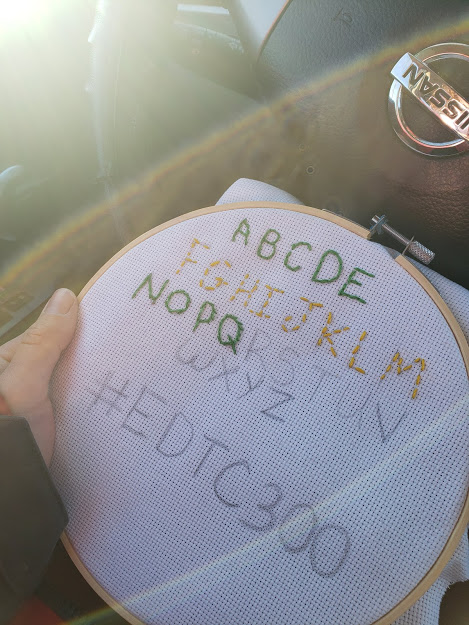 NISSAN
ABCDE
FGHIJKLM
NOPQRSTUV
WXYZ
#EDTC300